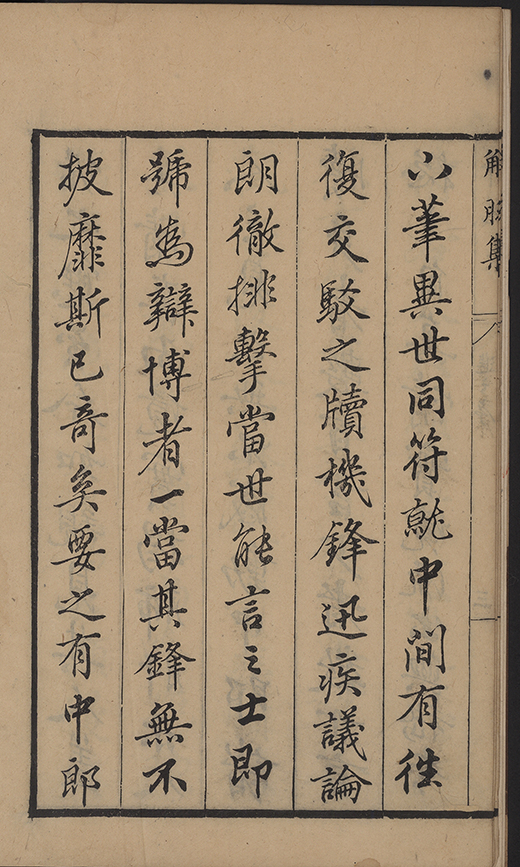 解脫集
六筆異世同符就中間有往
復交駁之牘機鋒迅疾議論
朗徹排擊當世能言之士即
號為辯博者一當其鋒無不
披靡斯已奇矣要之有中郎